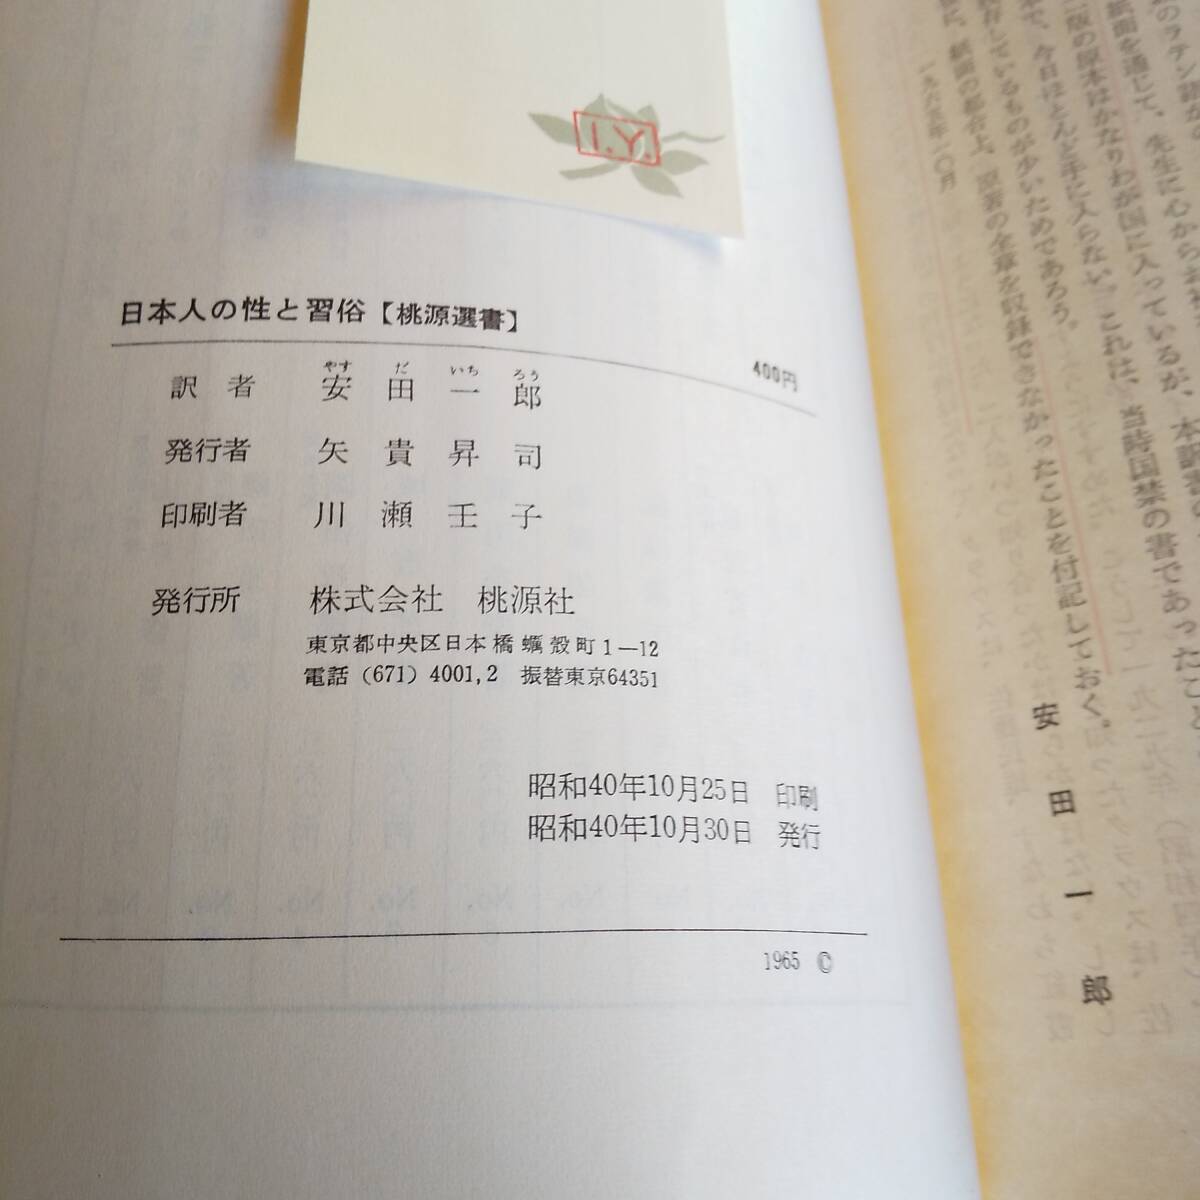 I.Y.
日本人の性と習俗【桃源選書】
400円
訳者 安田一郎
やす だ いち ろう
発行者 矢貴昇司
印刷者 川瀬壬子
発行所 株式会社 桃源社
東京都中央区日本橋蠣殻町1—12
電話(671)4001,2 振替東京64351
昭和40年10月25日 印刷
昭和40年10月30日 発行
1965 ©
紙面を通じて、先生に心からお
版の原本はかなりわが国に入っているが、本訳書の
で、今日ほとんど手に入らない。これは、当時国禁の書であったこと
存しているものが少いためであろう。
に、紙面の都合上、原著の全章を収録できなかったことを付記しておく。
一九六五年一〇月
安田一郎